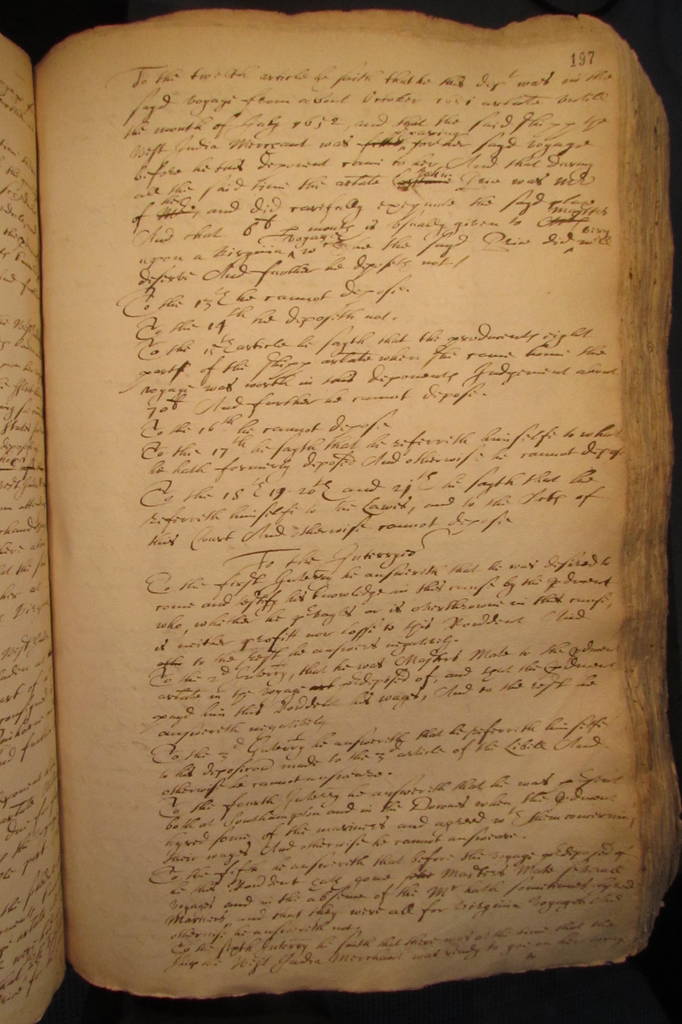 197
To the twelth article he saith that he this depot was in the
sayd voyage from about October 1651 untill
the month of July 1652, and that the said shipp the
West India Merchant was leaving for her sayd voyage
before he this deponent came to her, And that during
all the said time the arlate John Price was Mr
of her, and did carefully execute the sayd place
And that 6 li p moneth is usually given to masters
upon a Virginia voyage, and the sayd Price did very well
deserve And further he deposeth not./
To the 13th he cannot depose.
To the 14th he deposeth not.
To the 15th article he sayth that the producents eight
part of the shipp arlate when she came home the
voyage was worth in this deponents Judgement about
70 li And further he cannot depose.
To the 16th he cannot depose
To the 17th he sayth that he referreth himselfe to what
he hath formerly deposed And otherwise he cannot depose
To the 18th 19 20th and 21th he sayth that he
referreth himselfe to the Lawe, and to the Acts of
this Court And otherwise cannot depose
To the Interries
To the first Interry he answereth that he was desired to
come and testify his knowledge in this cause by the producent
who, whether he prevayle or is overthrowne in this cause,
is neither profitt nor losse to this Rondent And
to the rest he answers negatively.
To the 2d Interry, that he was Masters Mate to the producent
arlate in the voyage predeposed of, and that the producent
payd him this Rondent his wages, And to the rest he
answereth negatively
To the 3d Interry he answereth that he referreth himselfe
to his deposition made to the 3d article of the Libell And
otherwise he cannot answere.
To the fourth Interry he answereth that he was present
both at Southampton and in the Downes when the producent
agreed some of the mariners and agreed with them concerning
their wages And otherwise he cannot answere.
To the fifth he answereth that before the voyage predeposed of
he this Rondent hath gone Masters Mate severall
voyages and in the absence of the Mr hath sometimes
Mariners and that they were all for Virginia voyages And
otherwise he answereth not.
To the sixth Interry he saith that there was at the time that the
shipp the West India Merchant was ready to goe on her voyage